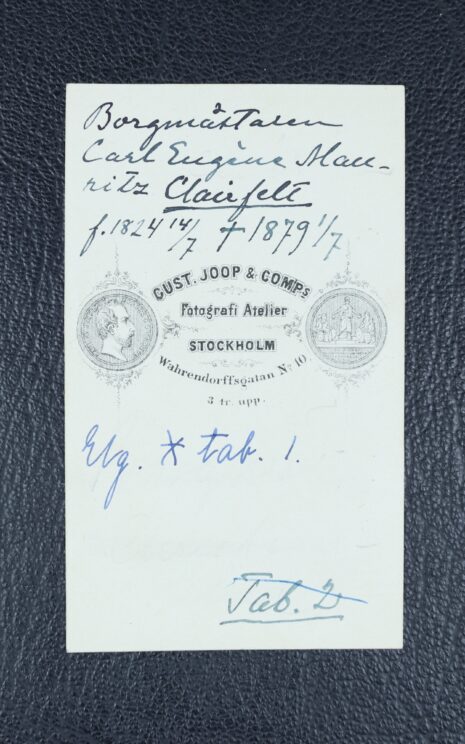 Borgmästaren
Carl Eugène Mau-
ritz Clairfelt
f. 1824 14/7 † 1879 1/7
GUST. JOOP & COMP's
Fotografi Atelier
STOCKHOLM
Wahrendorffsgatan No 10
3 tr. upp.
Elg. * tab. 1.
Tab. 2